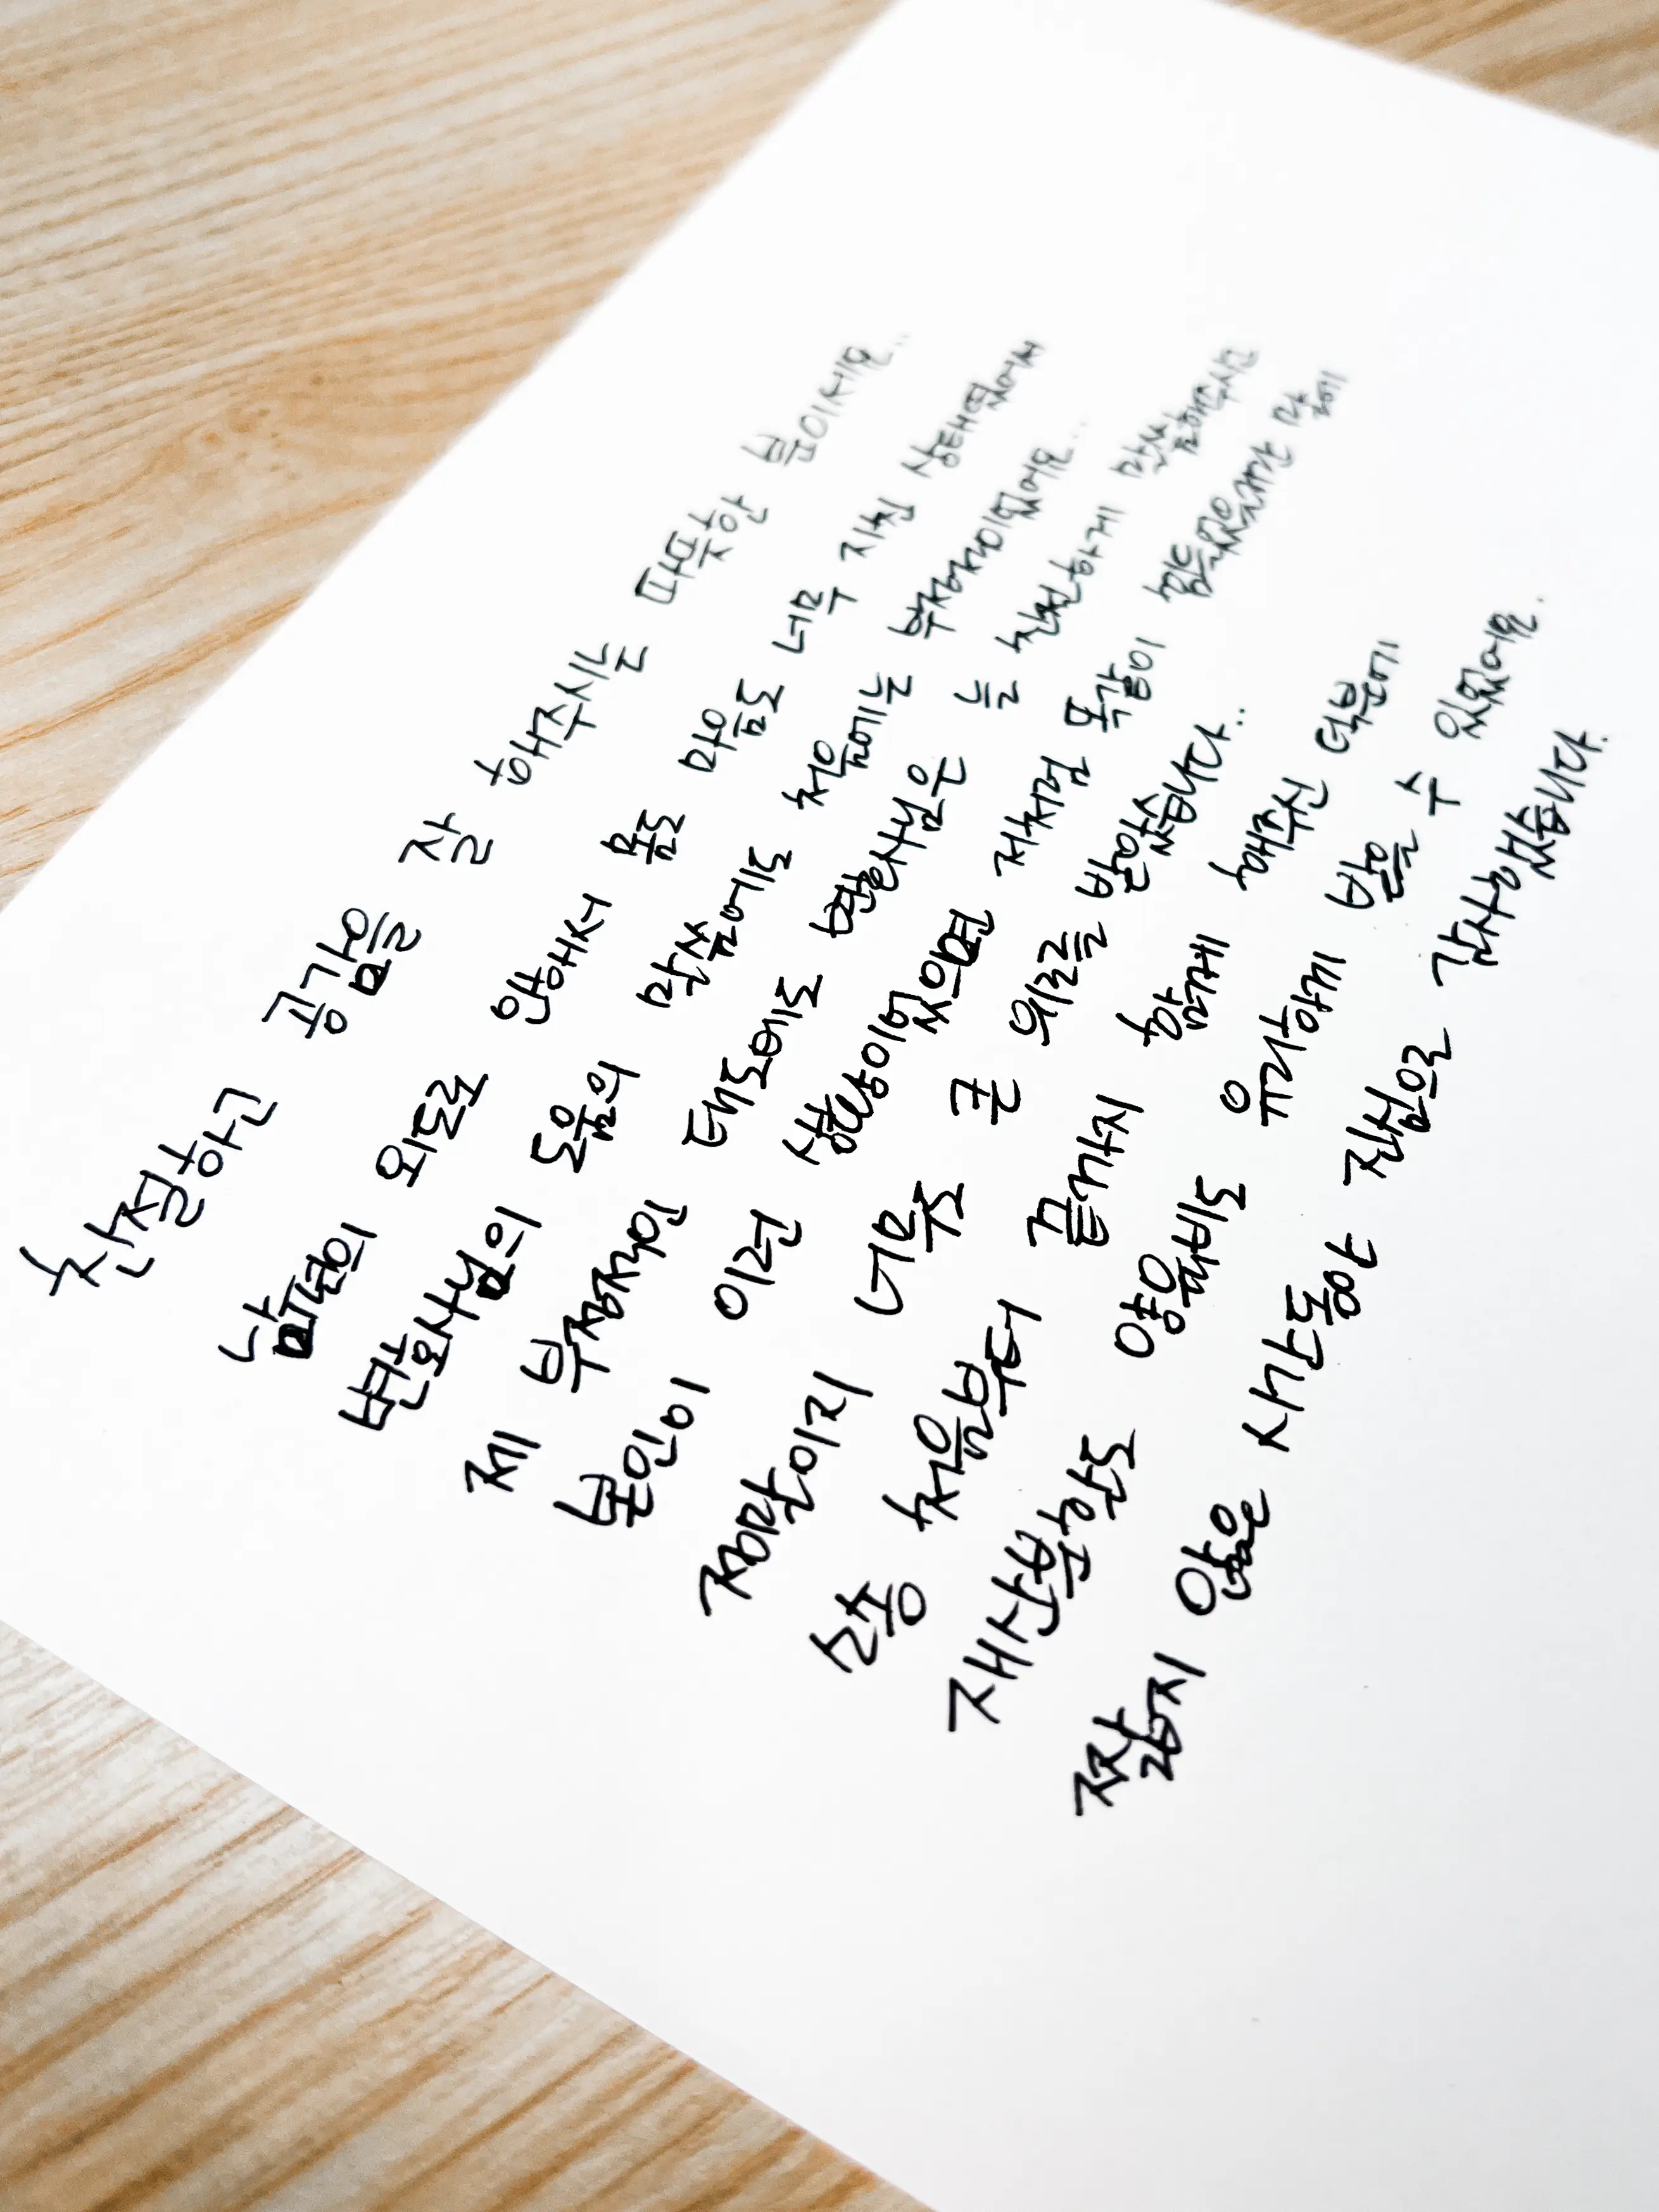 친절하고 공감을 잘 해주시고 따뜻한 분이세요..
남편의 외도로 인해서 몸도 맘도 너무 지친 상태였어서
변호사님의 도움의 감싸 안에는 부정적이었어요..
제 부정적인 태도에도 변호사님은 늘 친절하게 말씀해주시고
본인이 이런 상황이였으면 저처럼 똑같이 힘드셨을거란 말에
정말이지 너무 큰 위로를 받았습니다..
소송 처음부터 끝까지 함께 해주신 덕분에
재산분할도 양육비도 유리하게 받을 수 있었어요.
짧지 않은 시간동안 진심으로 감사했습니다.